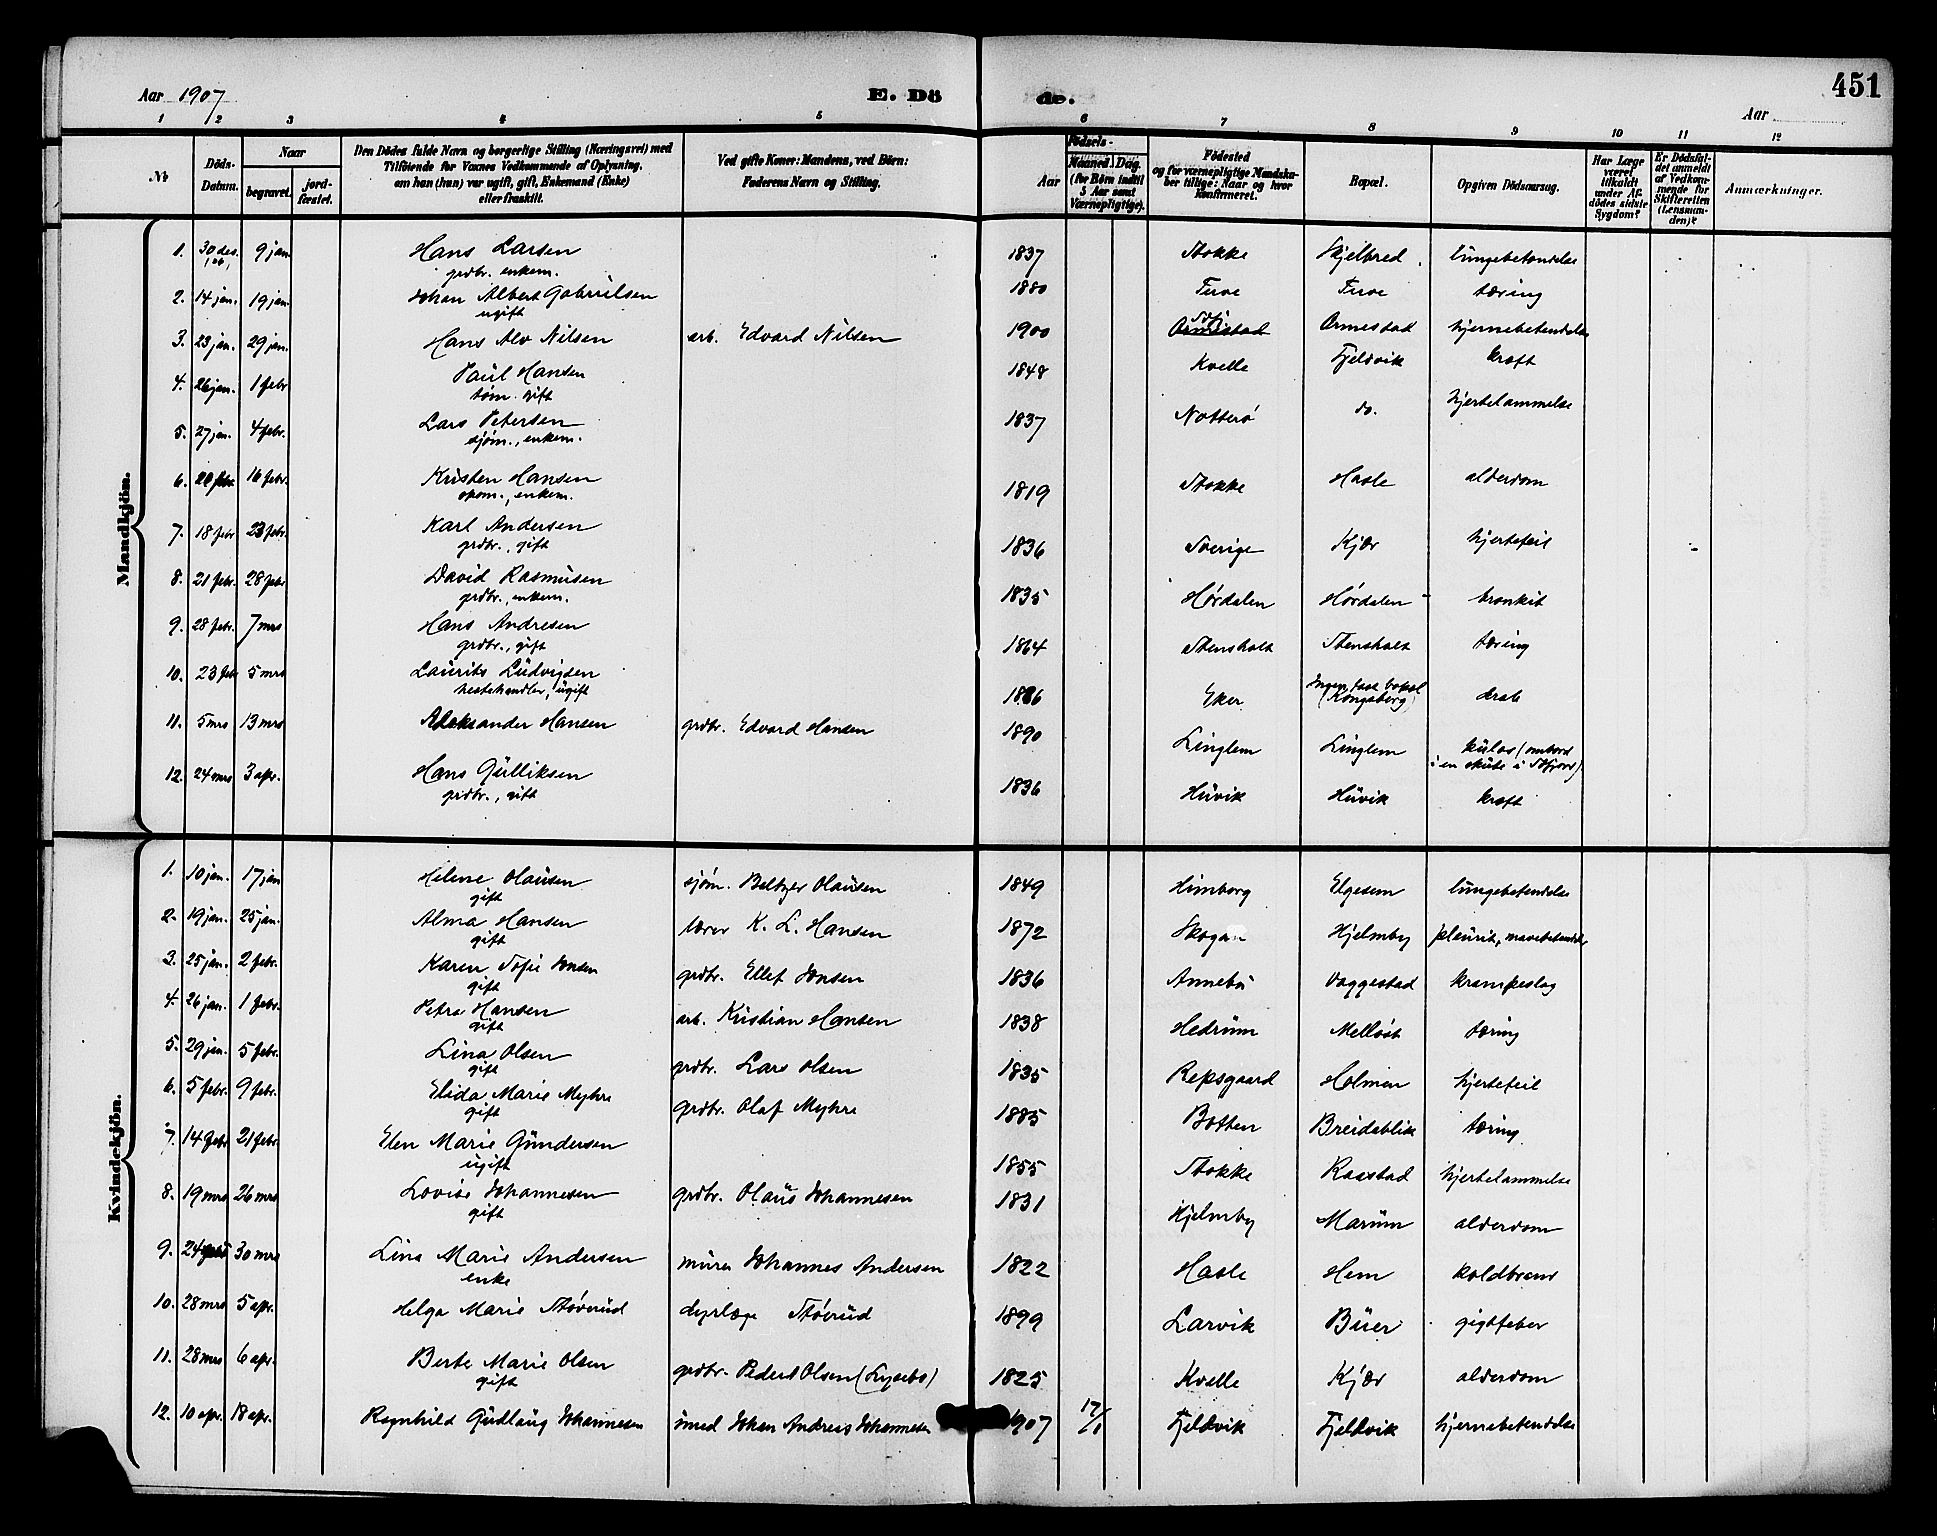 451
Aar 1907 E. Dö de. Aar
1 2 3 4 5 6 7 8 9 10 11 12
№ Döds-Datum. Naar begravet. jordfæstet. Den Dödes fulde Navn og borgerlige Stilling (Næringsvei) med Tilföiende for Voxnes Vedkommende af Oplysning, om han (hun) var ugift, gift, Enkemand (Enke) eller fraskilt. Ved gifte Koner: Mandens, ved Börn: Faderens Navn og Stilling. Fødsels- Aar Maaned. Dag. (for Børn indtil 5 Aar samt Værnepligtige). Födested og for værnepligtige Mandskaber tillige: Naar og hvor konfirmeret. Bopæl. Opgiven Dödsaarsag. Har Læge været tilkaldt under Afdödes sidste Sygdom? Er Dødsfaldet anmeldt af Vedkommende for Skifteretten (Lensmanden)? Anmærkninger.
Mandkjön.
1. 30 des. 9 jan Hans Larsen 1837 Stokke Skjelbred lungebetendelse
grdbr. enkem.
2. 14 jan. 19 jan. Johan Albert Gabrielsen 1880 Fure Fure tæring
ugift
3. 23 jan. 29 jan. Hans Alv Nilsen arb. Edvard Nilsen 1900 Ormestad Ormestad hjernebetendelse
4. 26 jan. 1 febr Paul Hansen 1848 Kvelle Fjeldvik kræft
tøm. gift
5. 27 jan. 4 febr. Lars Petersen 1837 Nøtterø do. hjertelammelse
sjøm., enkem.
6. 20 febr. 16 febr. Kristen Hansen 1819 Stokke Hasle alderdom
skom., enkem.
7. 18 febr 23 febr. Karl Andersen 1836 Sverige Kjær hjertefeil
grdbr., gift
8. 21 febr. 28 febr David Rasmusen 1835 Hørdalen Hørdalen bronkit
grdbr., enkem.
9. 28 febr. 7 mrs Hans Andresen 1864 Stensholt Stensholt tæring
grdbr., gift
10. 23 febr 5 mrs Laurits Ludvigsen 1886 Eker Ingen fast bopæl (Kongsberg) drab
hestehandler, ugift
11. 5 mrs 13 mrs Aleksander Hansen grdbr. Edvard Hansen 1890 Linglem Linglem kulos (ombord i en skute i Sfjord)
12. 24 mrs 3 apr. Hans Gulliksen 1836 Huvik Huvik kræft
grdbr., gift
Kvindekjön.
1. 10 jan. 17 jan Helene Olausen sjøm. Beltzer Olausen 1849 Himberg Elgesem lungebetendelse
gift
2. 19 jan. 25 jan. Alma Hansen lærer K. L. Hansen 1872 Skogan Hjelmby pleurit, mavebetendelse
gift
3. 25 jan. 2 febr. Karen Sofie Jonsen grdbr. Ellef Jonsen 1836 Annebø Vaggestad krampeslag
gift
4. 26 jan. 1 febr. Petra Hansen arb. Kristian Hansen 1838 Hedrum Melløst tæring
gift
5. 29 jan. 5 febr. Lina Olsen grdbr. Lars Olsen 1835 Repsgaard Holmen hjertefeil
gift
6. 5 febr. 9 febr. Elida Marie Myhre grdbr. Olaf Myhre 1885 Botten Breidablik tæring
gift
7. 14 febr 21 febr. Elen Marie Gundersen 1855 Stokke Raastad hjertelammelse
ugift
8. 19 mrs 26 mrs Lovise Johannesen grdbr. Olaus Johannesen 1831 Hjelmby Marum alderdom
gift
9. 24 30 mrs Lina Marie Andersen murer Johannes Andersen 1822 Hasle Hem koldbrand
enke
10. 28 mrs 5 apr. Helga Marie Støverud dyrlæge Støverud 1899 Larvik Buer gigtfeber
11. 28 mrs 6 apr. Berte Marie Olsen grdbr. Peder Olsen (Lysebo) 1825 Kvelle Kjær alderdom
gift
12. 10 apr. 18 apr. Ragnhild Gudlaug Johannesen smed Johan Andreas Johannesen 1907 17/1 Fjeldvik Fjeldvik hjernebetendelse